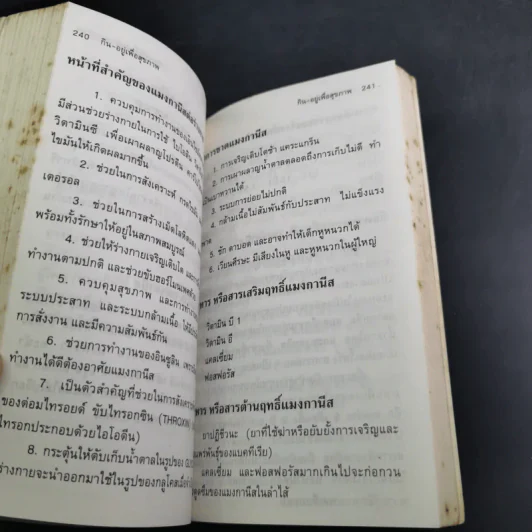 240 กิน-อยู่เพื่อสุขภาพ
หน้าที่สำคัญของแมงกานีส
1. ควบคุมการทำงานของ
มีส่วนช่วยร่างกายในการใช้ ไบโอติน
วิตามินซี เพื่อเผาผลาญโปรตีน
ไขมันให้เกิดผลมากขึ้น
2. ช่วยในการสังเคราะห์
เตอรอล
3. ช่วยในการสร้างเม็ดโลหิตแดง
พร้อมทั้งรักษาให้อยู่ในสภาพสมบูรณ์
4. ช่วยให้ร่างกายเจริญเติบโต
ทำงานตามปกติ และช่วยขับฮอร์โมนเพศ
5. ควบคุมสุขภาพ และการทำงาน
ระบบประสาท และระบบกล้ามเนื้อ
การสั่งงาน และมีความสัมพันธ์กัน
6. ช่วยการทำงานของอินซูลิน
ทำงานได้ดีต้องอาศัยแมงกานีส
7. เป็นตัวสำคัญที่ช่วยในการสังเคราะห์
ของต่อมไทรอยด์ ขับไทรอกซิน (THROXIN)
ไทรอกประกอบด้วยไอโอดีน)
8. กระตุ้นให้ตับเก็บน้ำตาลในรูปของ
ร่างกายจะนำออกมาใช้ในรูปของกลูโคสเมื่อ
กิน-อยู่เพื่อสุขภาพ 241
การขาดแมงกานีส
1. การเจริญเติบโตช้า แคระแกร็น
2. การเผาผลาญน้ำตาลตลอดถึงการเก็บไม่ดี ทำ
เป็นเบาหวานได้
3. ระบบการย่อยไม่ปกติ
4. กล้ามเนื้อไม่สัมพันธ์กับประสาท ไม่แข็งแรง
5. ชัก ตาบอด และอาจทำให้เด็กหูหนวกได้
6. เวียนศีรษะ มีเสียงในหู และหูหนวกในผู้ใหญ่
หาร หรือสารเสริมฤทธิ์แมงกานีส
วิตามิน บี 1
วิตามิน อี
แคลเซี่ยม
ฟอสฟอรัส
หาร หรือสารต้านฤทธิ์แมงกานีส
ยาปฏิชีวนะ (ยาที่ใช้ฆ่าหรือยับยั้งการเจริญและ
แพร่พันธุ์ของแบคทีเรีย)
แคลเซี่ยม และฟอสฟอรัสมากเกินไปจะก่อกวน
ดูดซึมของแมงกานีสในลำไส้